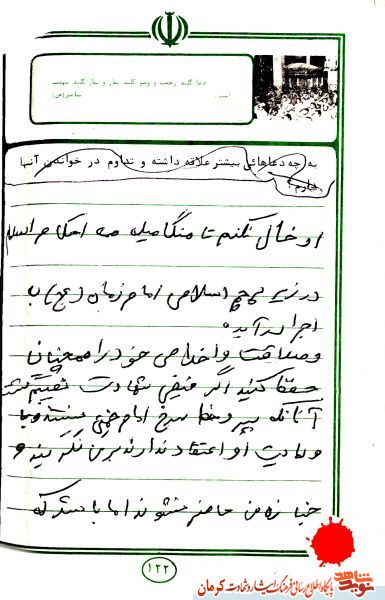 دعا کلید رحمت و وضو کلید نماز و نماز کلید بهشت
است. پیامبر(ص)
به چه دعاهائی بیشتر علاقه داشته و تداوم در خواندن آنها
دارم؟
او خالی نکنم تا هنگامیکه همه احکام اسلام
در زیر پرچم اسلامی امام زمان (عج) به
اجرا درآید.
و صداقت و اخلاص خود را همچنان
حفظ کنید اگر فیض شهادت نصیبم شد
آنانکه پیرو خط سرخ امام خمینی نیستند و با
ولایت او اعتقاد ندارند بر من نگریند و
جنازه من حاضر نشوند اما باشد که
۱۲۲
نوید شاهد
پایگاه اطلاع رسانی فرهنگ ایثار و شهادت کرمان